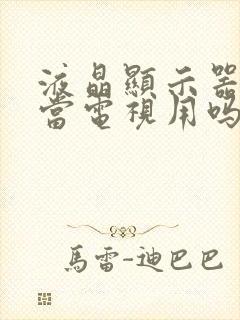 液晶顯示器
當電視用嗎
馬雷-迪巴巴